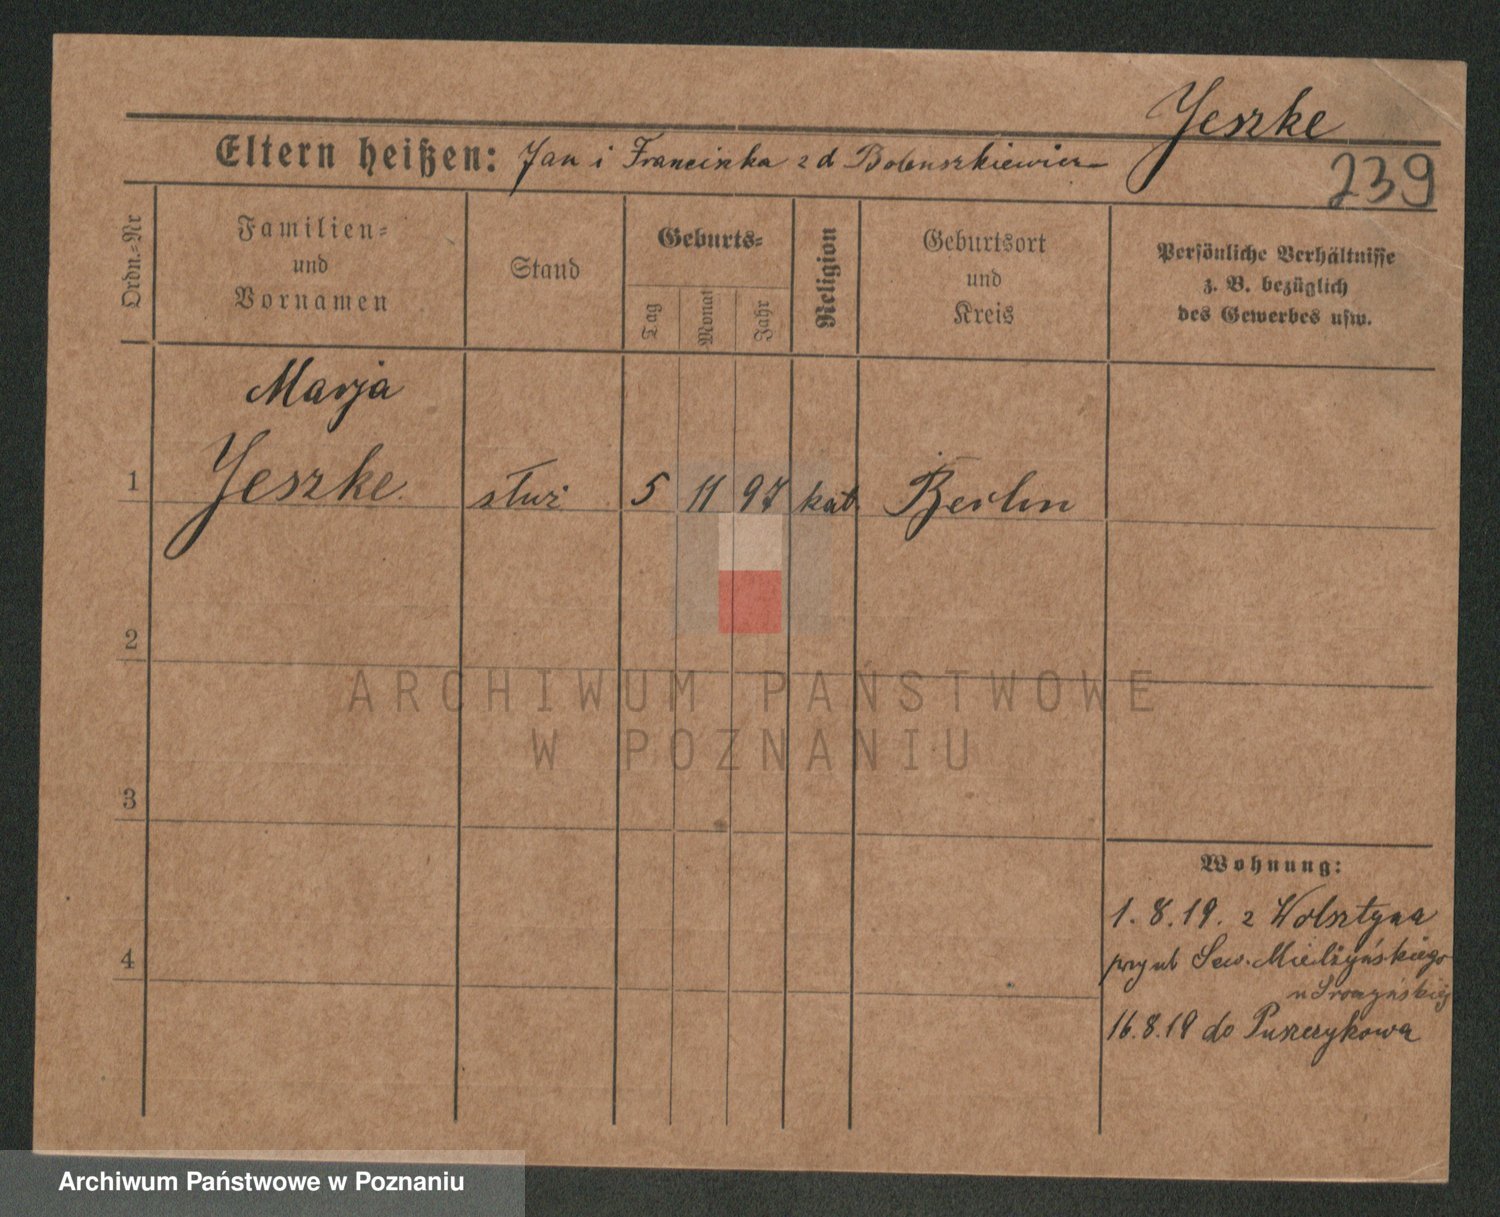 Jeszke
Eltern heißen: Jan i Franciszka z d
239
Ordn.=Nr
Familien=
und
Vornamen
Stand
Geburts=
Tag
Monat
Jahr
Religion
Geburtsort
und
Kreis
Persönliche Verhältnisse
z. B. bezüglich
des Gewerbes usw.
Marja
1 Jeszke służ 5 11 97 kat. Berlin
2
ARCHIWUM PAŃSTWOWE
W POZNANIU
3
Wohnung:
1.8.19. z Wolsztyna
przy ul. Sew. Mielżyńskiego
u
4
16.8.19 do Puszczykowa
Archiwum Państwowe w Poznaniu